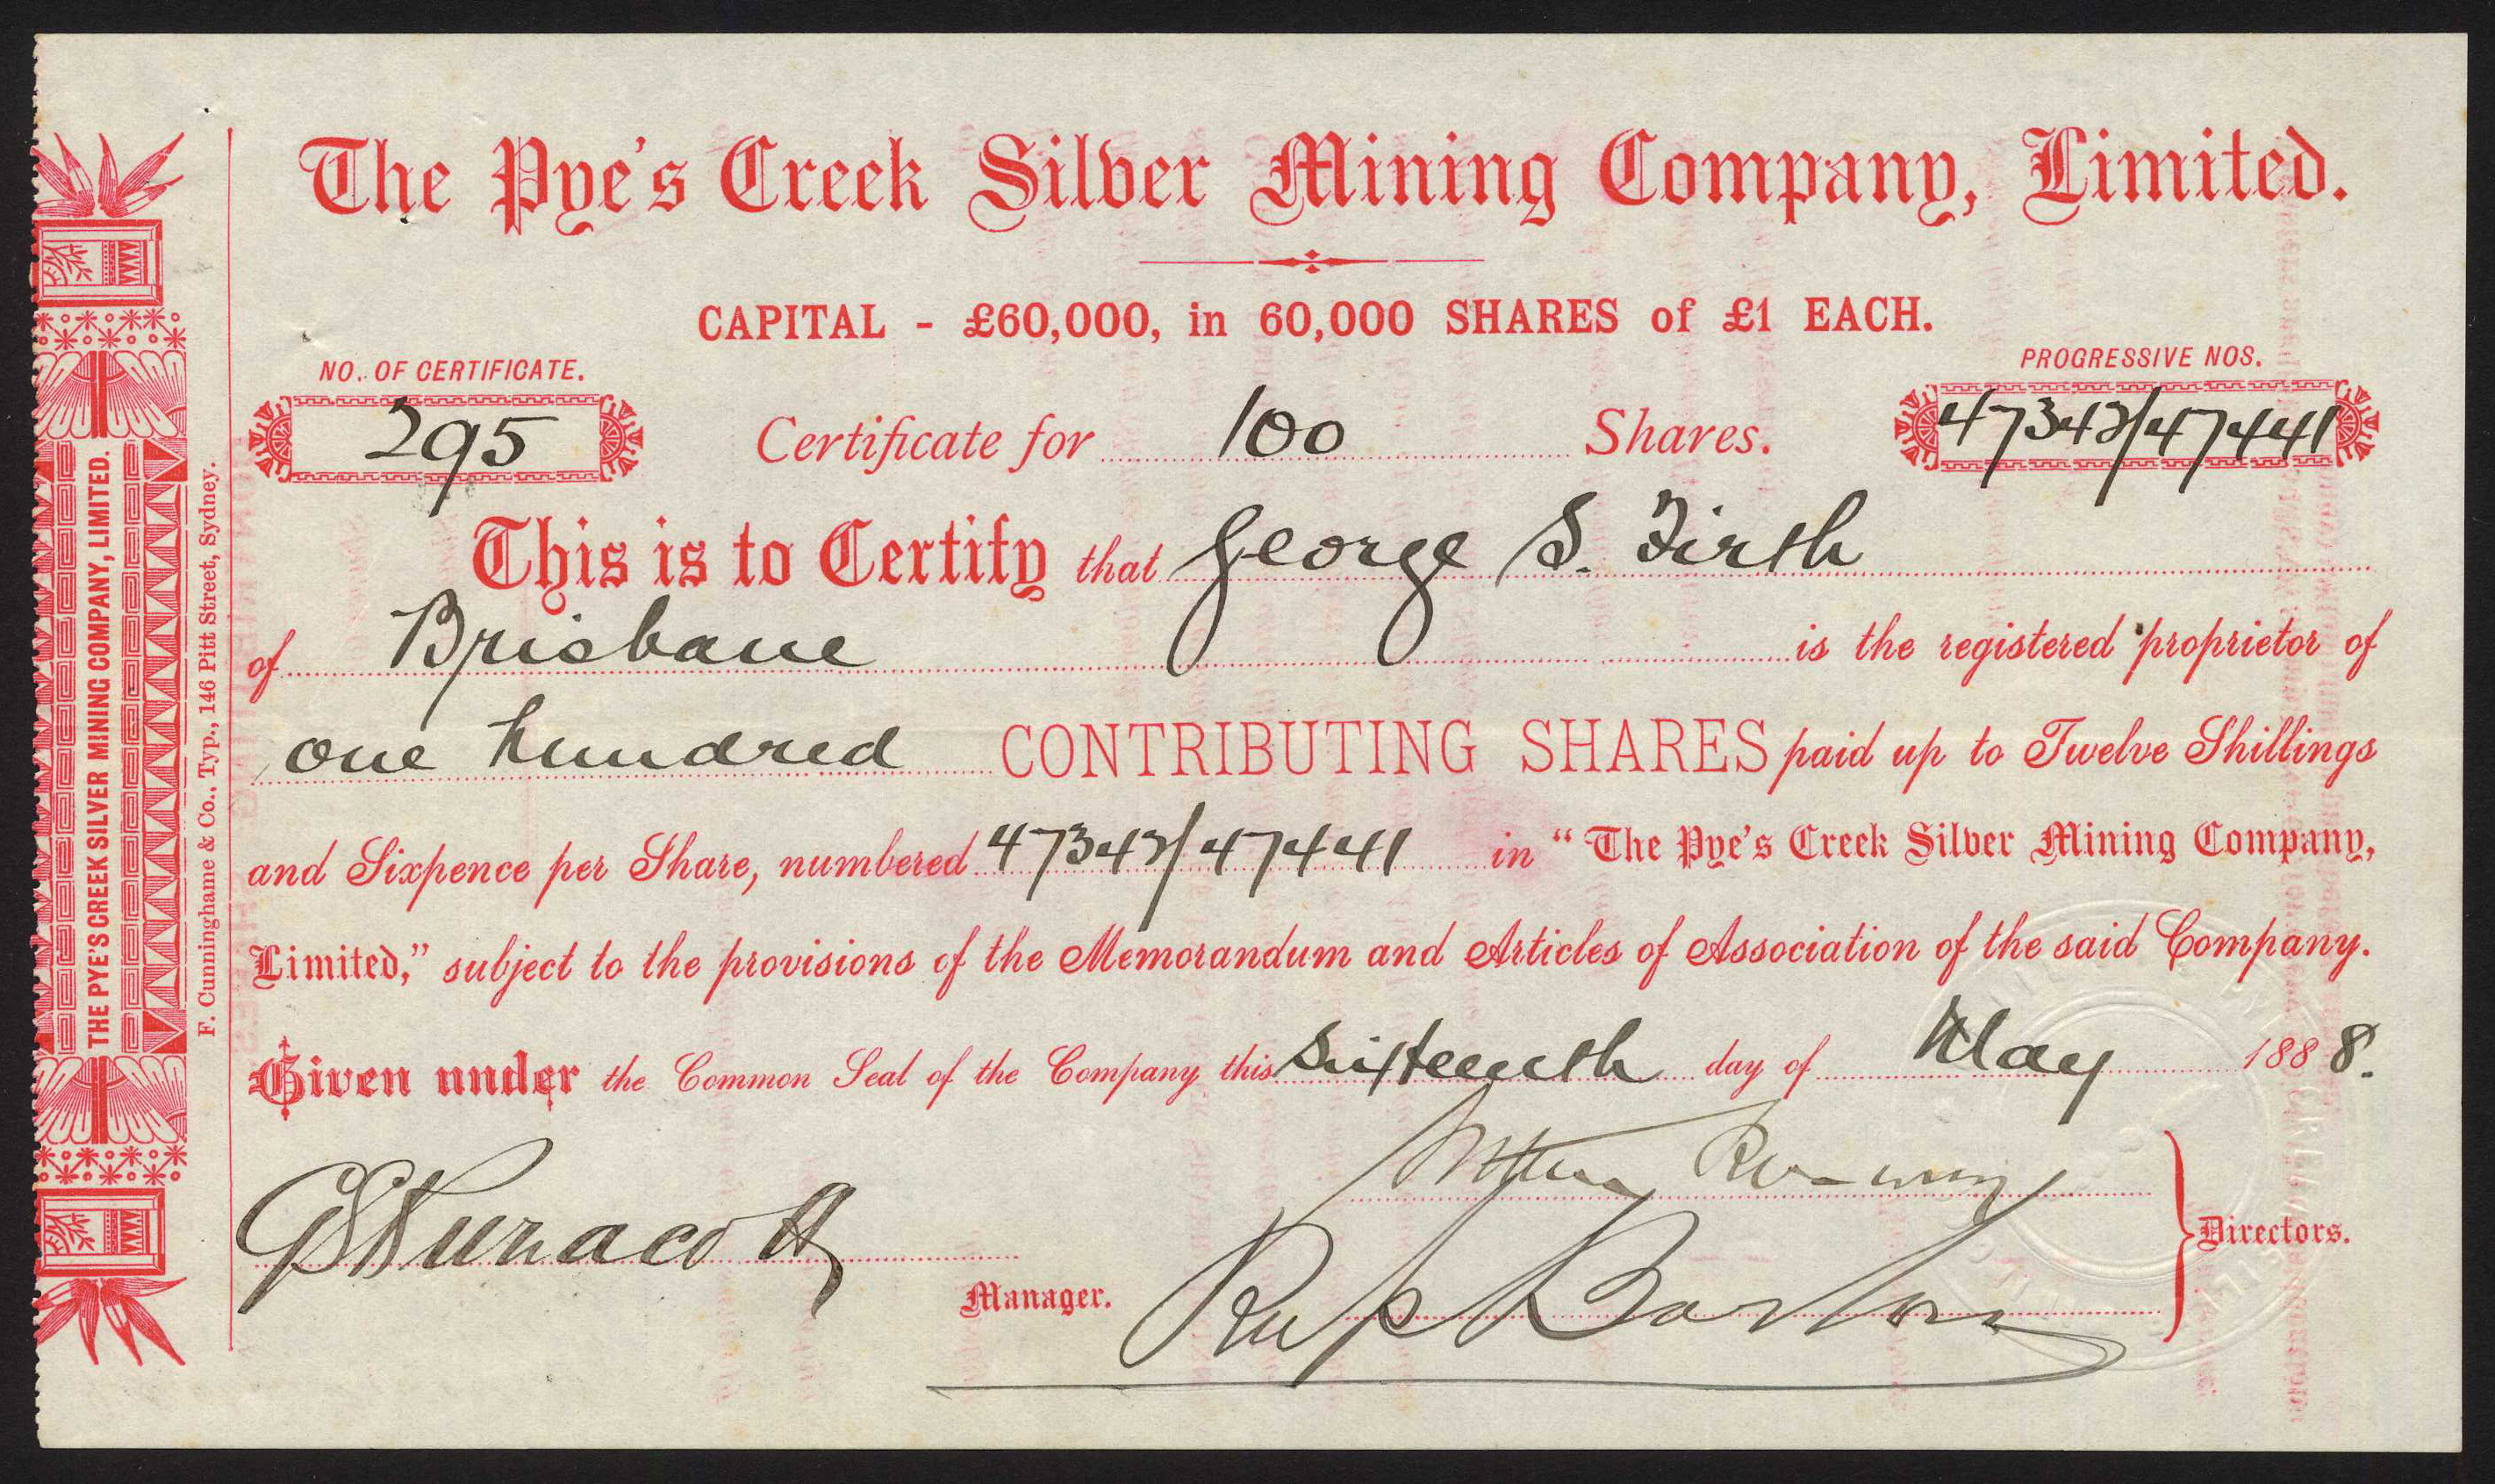 The Pye's Creek Silver Mining Company, Limited.
CAPITAL - £60,000, in 60,000 SHARES of £1 EACH.
NO. OF CERTIFICATE.
PROGRESSIVE NOS.
295 Certificate for 100 Shares. 47342/47441
This is to Certify that George S. Firth
of Brisbane is the registered proprietor of
one hundred CONTRIBUTING SHARES paid up to Twelve Shillings
and Sixpence per Share, numbered 47342/47441 in "The Pye's Creek Silver Mining Company,
Limited," subject to the provisions of the Memorandum and Articles of Association of the said Company.
Given under the Common Seal of the Company this Sixteenth day of May 1888.
Directors.
Manager.
THE PYE'S CREEK SILVER MINING COMPANY, LIMITED.
F. Cunninghame & Co., Typ., 146 Pitt Street, Sydney.